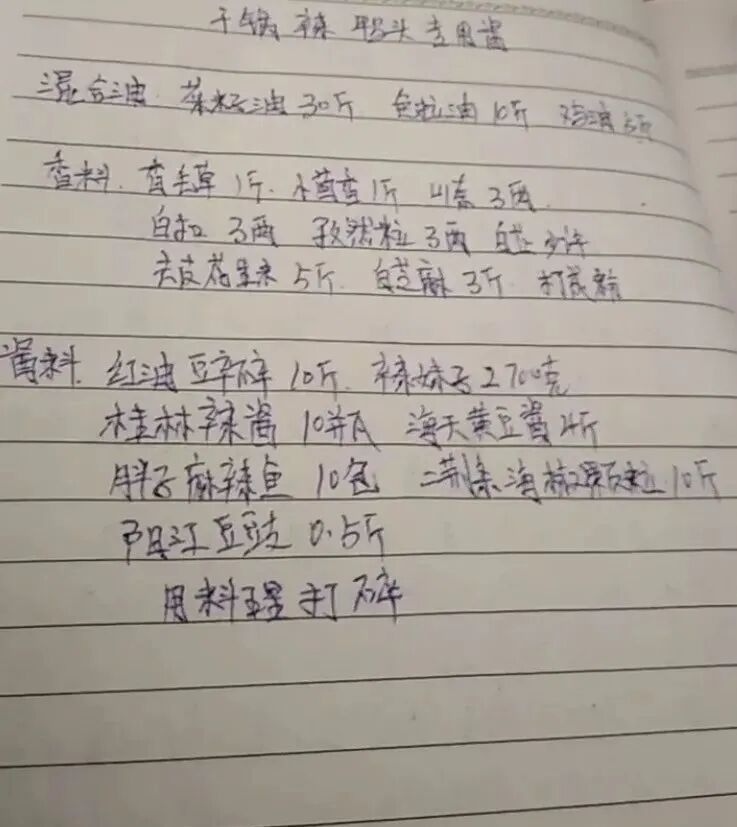 干锅辣鸭头专用酱
混合油. 菜籽油30斤 色拉油10斤 鸡油5斤
香料. 香毛草1斤. 小茴香1斤 山奈3两.
白扣3两 孜然粒3两 白芷少许
去皮花生米5斤. 白芝麻3斤. 打成粉
酱料. 红油豆瓣碎10斤. 辣妹子2700克
桂林辣酱10瓶 海天黄豆酱4斤
胖子麻辣鱼10包 二荆条海椒颗粒10斤
阳江豆豉0.5斤
用料理打碎